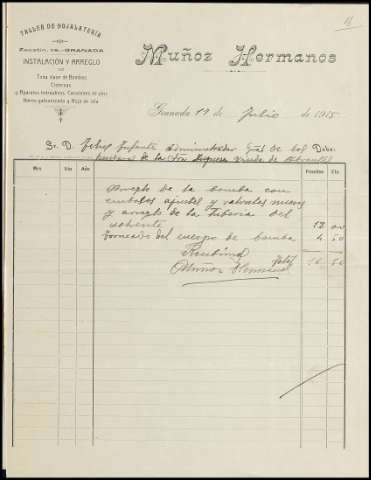 TALLER DE HOJALATERÍA
Zacatín, 19.-GRANADA
INSTALACIÓN Y ARREGLO
DE
Toda clase de Bombas
Cisternas
y Aparatos Inodoros, Canalones de zinc
Hierro galvanizado y Hoja de lata
Muñoz Hermanos
Granada 19 de Julio de 1915
Sr. D. Infante Administrador de Debe
de la Sra Duquesa Viuda de Abrantes
Mes Día Año Pesetas Cts
Arreglo de la bomba con
embolos ajustes y valvulas nuevas
y arreglo de la tuberia del
volvente 12 00
torneado del cuerpo de bomba 4 50
Recibimos Total 16 50
Muñoz Hermanos